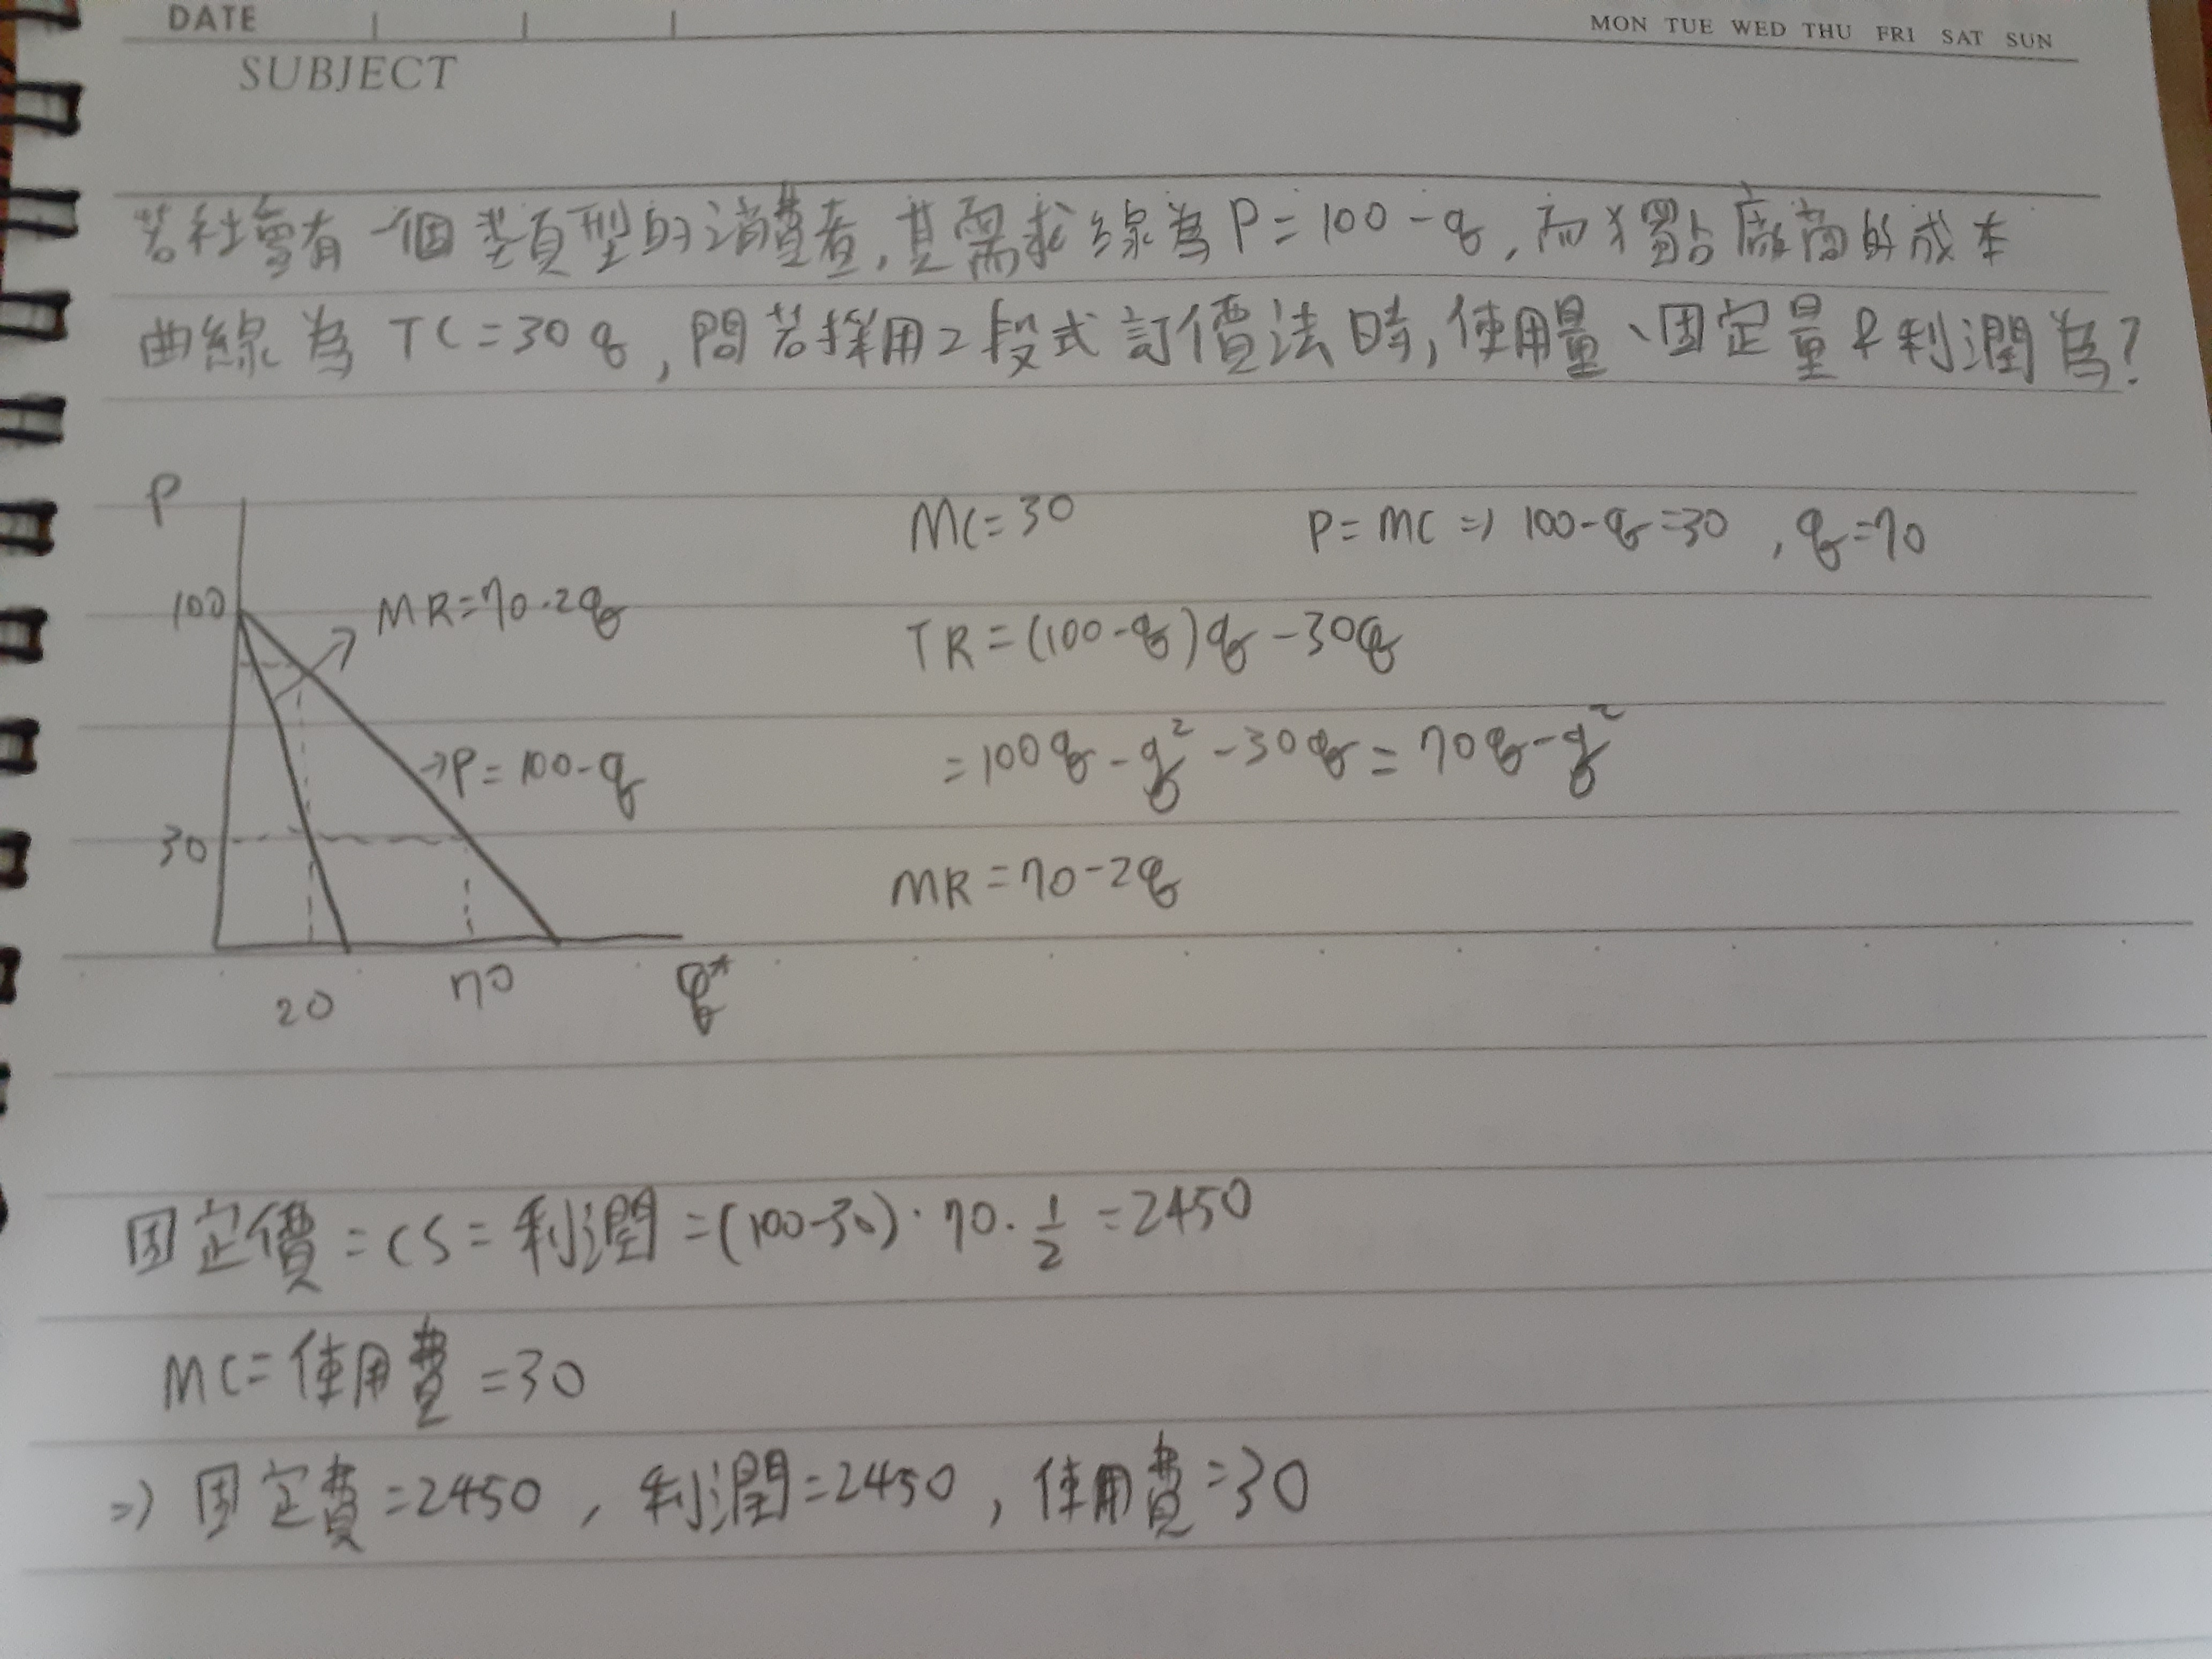 DATE
MON TUE WED THU FRI SAT SUN
SUBJECT
若社會有一個類型的消費者,其需求線為P=100-q,而獨占廠商的成本
曲線為TC=30q,問若採用2段式訂價法時,使用量、固定量&利潤為?
P
MC=30
P=MC=) 100-q=30 , q=70
100
MR=70-2q
TR=(100-q)q-30q
→P=100-q
=100q-q²-30q=70q-q²
30
MR=70-2q
20
70
q*
固定價=CS=利潤=(100-30)·70·1/2=2450
MC=使用費=30
=) 固定費=2450,利潤=2450,使用費=30